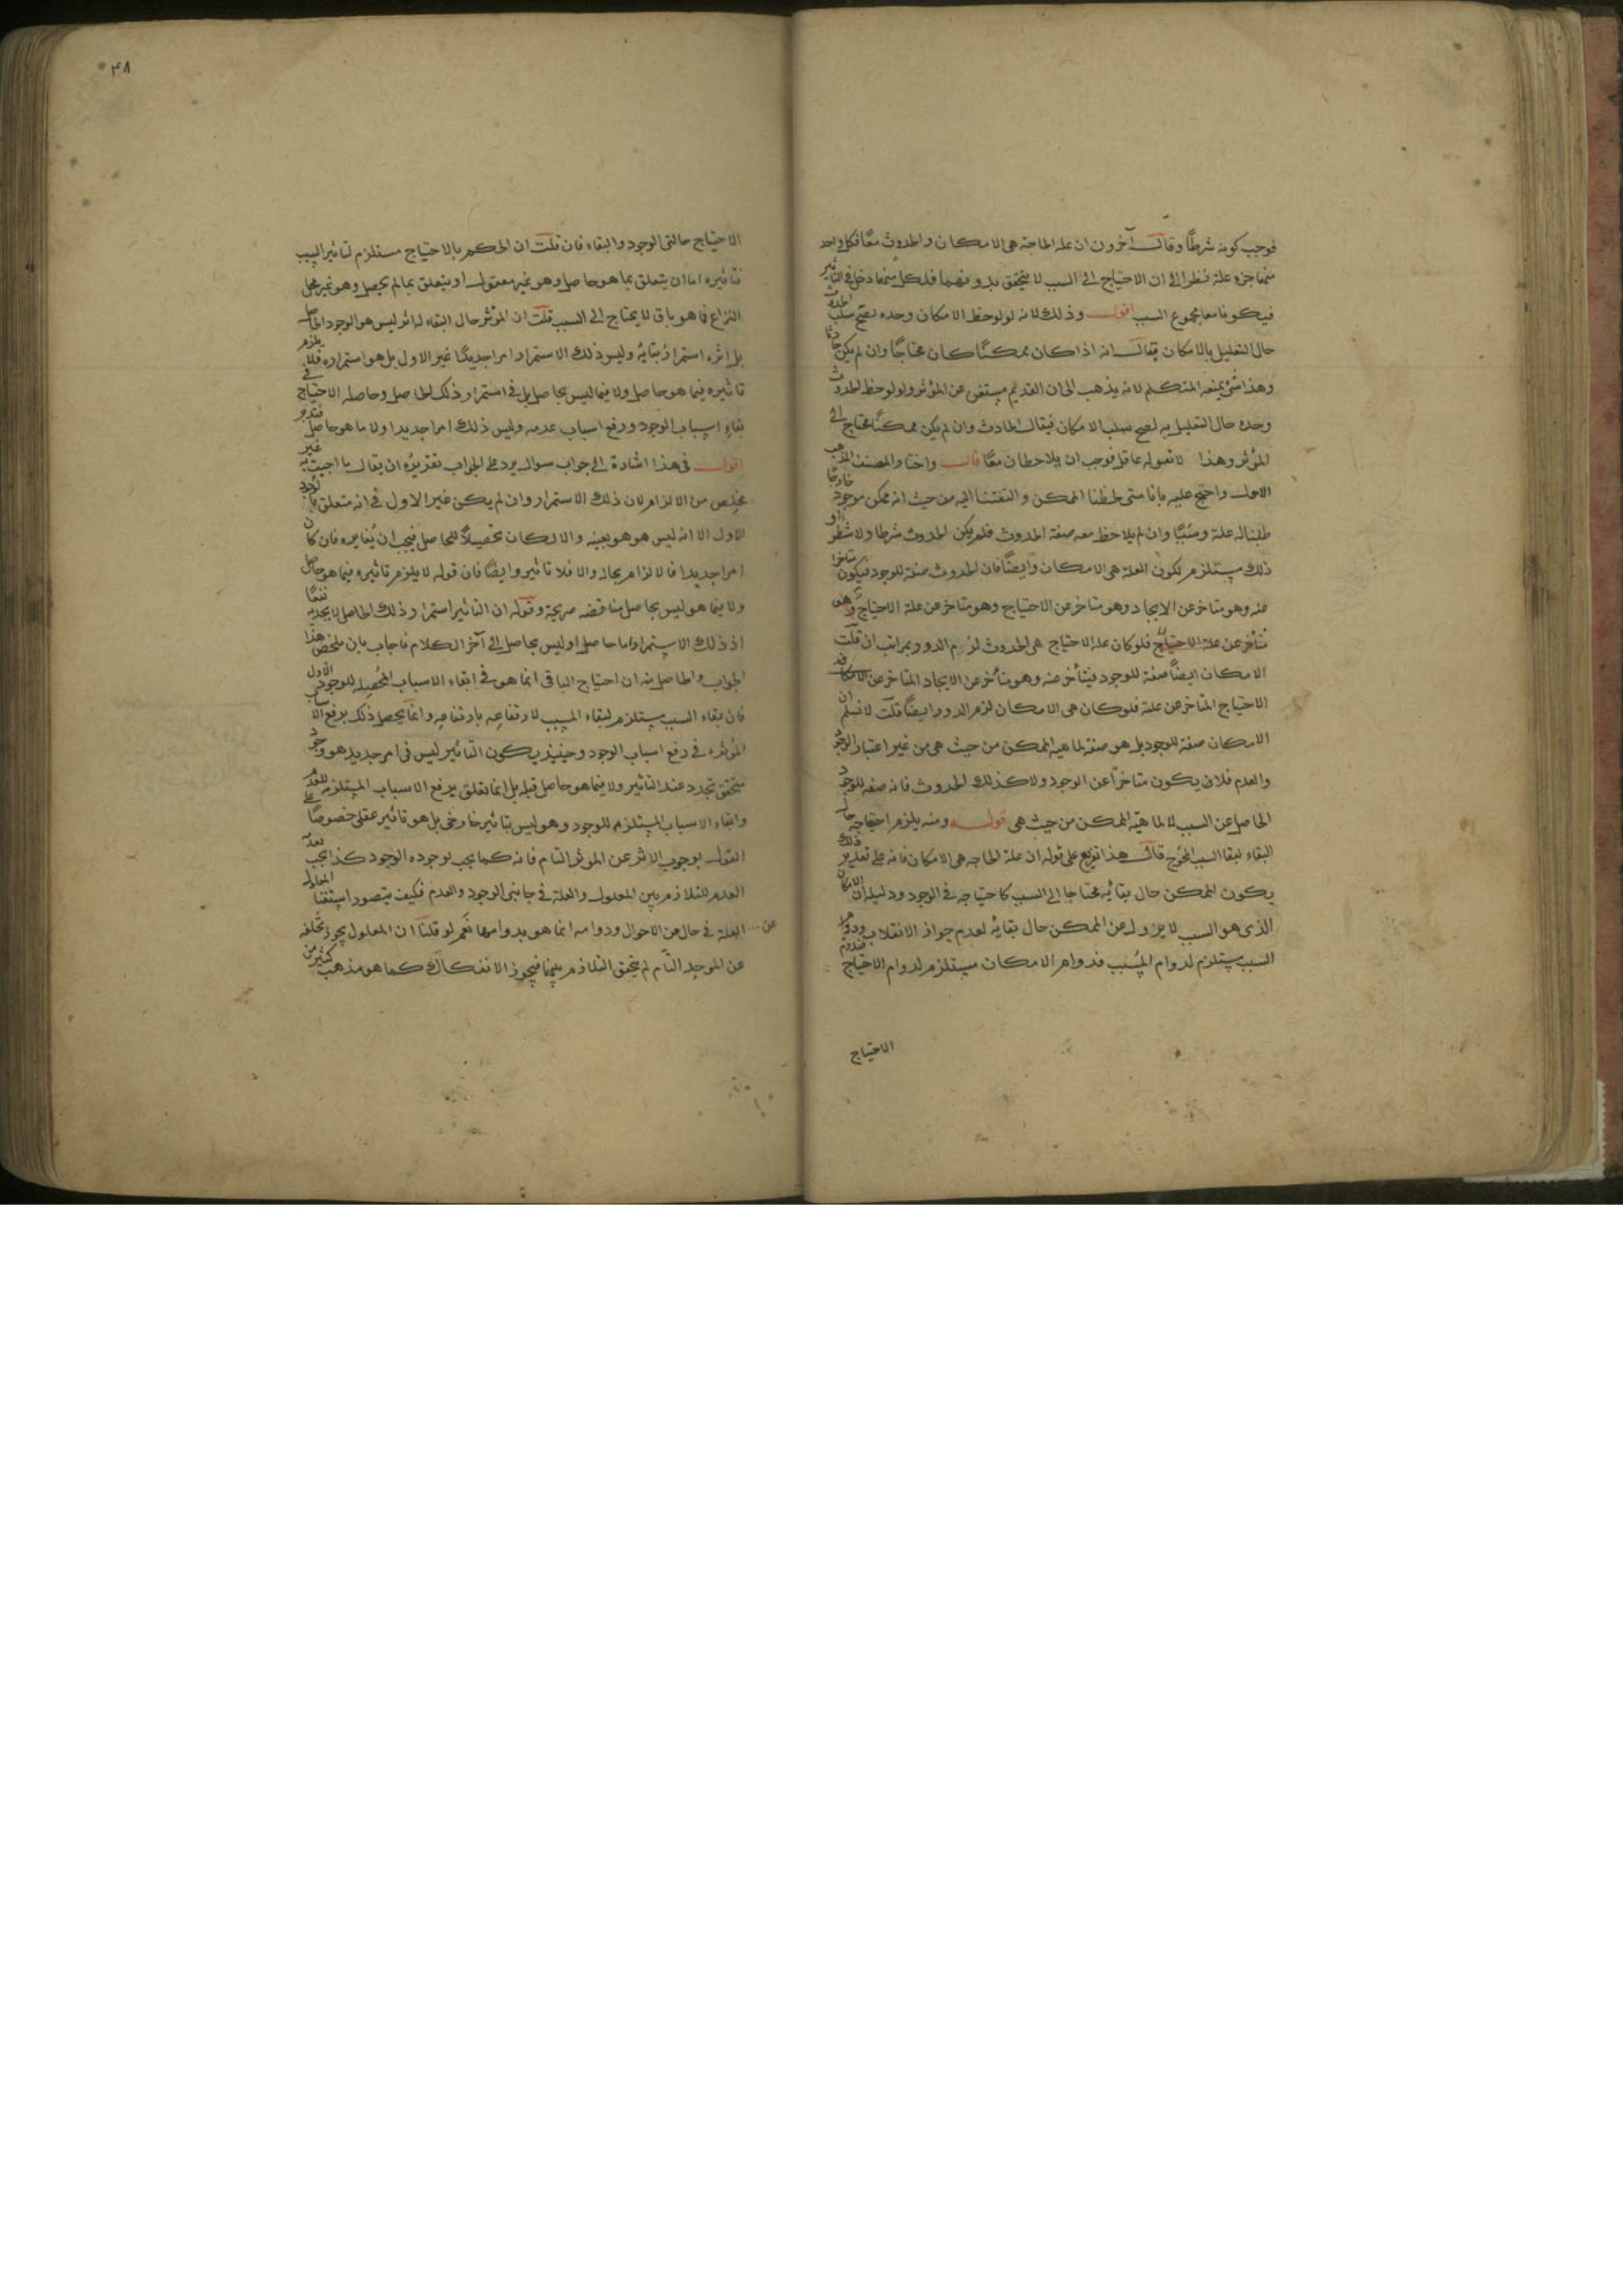 فوجب كونه شرطًا وقال آخرون ان علة الحاجة هى الامكان والحدوث معًا فكل واحد
منهما جزء علة نظرا الى ان الاحتياج الى السبب لا يتحقق بدونهما فلكل منهما دخل فى التاثير
فيكونا معا مجموع السبب اقول وذلك لانه لو لوحظ الامكان وحده لصح سلب الحدوث
حال التعليل بالامكان فيقال انه اذا كان ممكنًا كان محتاجًا وان لم يكن حادثا
وهذا شئ يمنعه المتكلم لانه يذهب الى ان القديم مستغن عن المؤثر ولو لوحظ الحدوث
وحده حال التعليل به لصح سلب الامكان فيقال الحادث وان لم يكن ممكنًا محتاج الى
المؤثر وهذا لا يقوله عاقل فوجب ان يلاحظان معًا قال واختار المصنف المذهب
الاول واحتج عليه بانا متى لحظنا الممكن والتفتنا اليه من حيث انه ممكن موجود خارجًا
طلبنا له علة وسببًا وان لم يلاحظ معه صفة الحدوث فلم يكن الحدوث شرطا ولا شطرا و
ذلك يستلزم لكون العلة هى الامكان وايضًا فان الحدوث صفة للوجود فيكون متاخرا
عنه وهو متاخر عن الايجاد وهو متاخر عن الاحتياج وهو متاخر عن علة الاحتياج وهو
متأخر عن علة الاحتياج فلو كان علة الاحتياج هى الحدوث لزم الدور بمراتب ان قلت
الامكان ايضًا صفة للوجود فيتأخر عنه وهو متأخر عن الايجاد المتاخر عن الامكان
الاحتياج المتاخر عن علة فلو كان هى الامكان لزم الدور ايضًا قلت لا نسلم ان
الامكان صفة للوجود بل هو صفة لماهية الممكن من حيث هى من غير اعتبار الوجود
والعدم فلان يكون متاخرًا عن الوجود ولا كذلك الحدوث فانه صفة للوجود
الحاصل عن السبب لا لماهية الممكن من حيث هى قوله ومنه يلزم احتياجه حال
البقاء لبقا السبب المحوج قال هذا تفريع على قوله ان علة الحاجة هى الامكان فانه على تقدير ذلك
يكون الممكن حال بقائه محتاجا الى السبب كاحتياجه فى الوجود ودليله ان الامكان
الذى هو السبب لا يزول عن الممكن حال بقائه لعدم جواز الانقلاب ودوام
السبب يستلزم لدوام المسبب فدوام الامكان يستلزم لدوام الاحتياج
الاحتياج
۴۸
الاحتياج حالتى الوجود والبقاء فان قلت ان الحكم بالاحتياج مستلزم لتاثير السبب
فتاثيره اما ان يتعلق بما هو حاصل وهو غير معقول او يتعلق بما لم يحصل وهو غير محل
النزاع فما هو باق لا يحتاج الى السبب قلت ان المؤثر حال البقاء له اثر ليس هو الوجود الحاصل
بل اثره استمرار بقائه وليس ذلك الاستمرار امرا جديدًا غير الاول بل هو استمراره فلا يلزم
تاثيره فيما هو حاصل ولا فيما ليس بحاصل بل فى استمرار ذلك الحاصل وحاصله الاحتياج فى
بقاء اسباب الوجود ورفع اسباب عدمه وليس ذلك امرا جديدا ولا ما هو حاصل
اقول فى هذا اشارة الى جواب سوال يرد على الجواب تقريره ان يقال ما اجيب به غير
مخلص من الالزام لان ذلك الاستمرار وان لم يكن غير الاول فى انه متعلق بالوجود
الاول الا انه ليس هو هو بعينه والا لكان تحصيلًا للحاصل فيجب ان يغايره فان كان
امرا جديدا فالالزام بحاله والا فلا تاثير وايضًا فان قوله لا يلزم تاثيره فيما هو حاصل
ولا فيما هو ليس بحاصل مناقضه صريحة وقوله ان التاثير استمرار ذلك الحاصل لا يجديه نفعًا
اذ ذلك الاستمرار اما حاصل او ليس بحاصل الى آخر الكلام فاجاب بان ملخص هذا
الجواب والحاصل منه ان احتياج الباقى انما هو فى ابقاء الاسباب المحصله للوجود الاول
فان بقاء السبب يستلزم لبقاء المسبب لارتفاعه بارتفاعه وانما يحصل ذلك برفع الاسباب
المؤثره فى رفع اسباب الوجود وحينئذ يكون التاثير ليس فى امر جديد هو وجود
متحقق تجدد عند التاثير ولا فيما هو حاصل قبله بل انما تعلق برفع الاسباب المستلزمه للعدم
وابقاء الاسباب المستلزم للوجود وهو ليس بتاثير خارجى بل هو تاثير عقلى خصوصًا على
القول بوجوب الاثر عن المؤثر التام فانه كما يجب بوجوده الوجود كذا يجب بعدمه
العدم للتلازم بين المعلول والعلة فى جانبى الوجود والعدم فكيف يتصور استغنا المعلول
عن العلة فى حال من الاحوال ودوامه انما هو بدوامها نعم لو قلنا ان المعلول يجوز تخلفه
عن الموجد التام لم يتحقق التلازم بينهما فيجوز الانفكاك كما هو مذهب كثير من